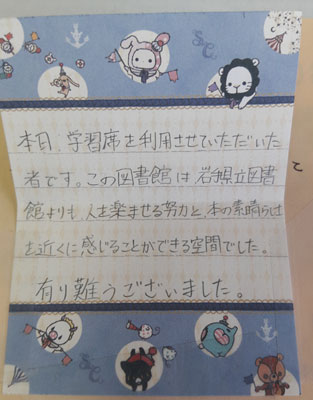 本日、学習席を利用させていただいた
者です。この図書館は岩手県立図書
館よりも、人を楽ませる努力と、本の素晴らしさ
を近くに感じることができる空間でした。
有り難うございました。